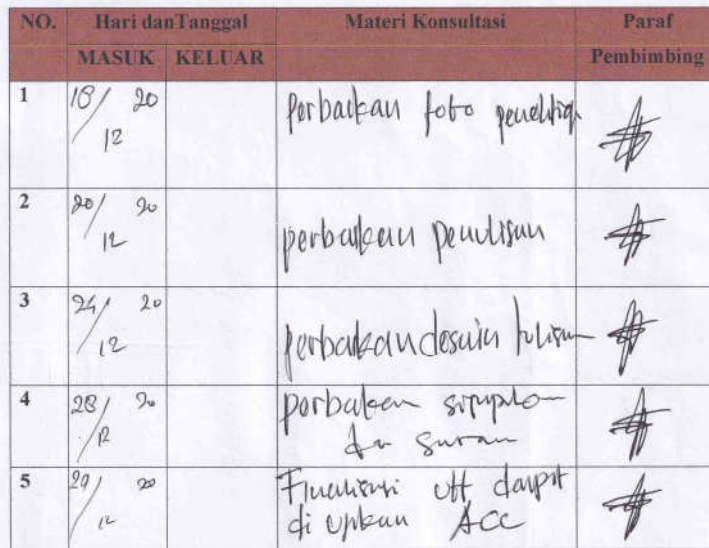 NO. Hari dan Tanggal Materi Konsultasi Paraf
MASUK KELUAR Pembimbing
1 18/12 20 Perbaikan foto penelitian
2 20/12 20 perbaikan penulisan
3 24/12 20 perbaikan desain tulisan
4 28/12 20 perbaikan simpulan
dan saran
5 29/12 20 Finalisasi utk dapat
di ujikan ACC